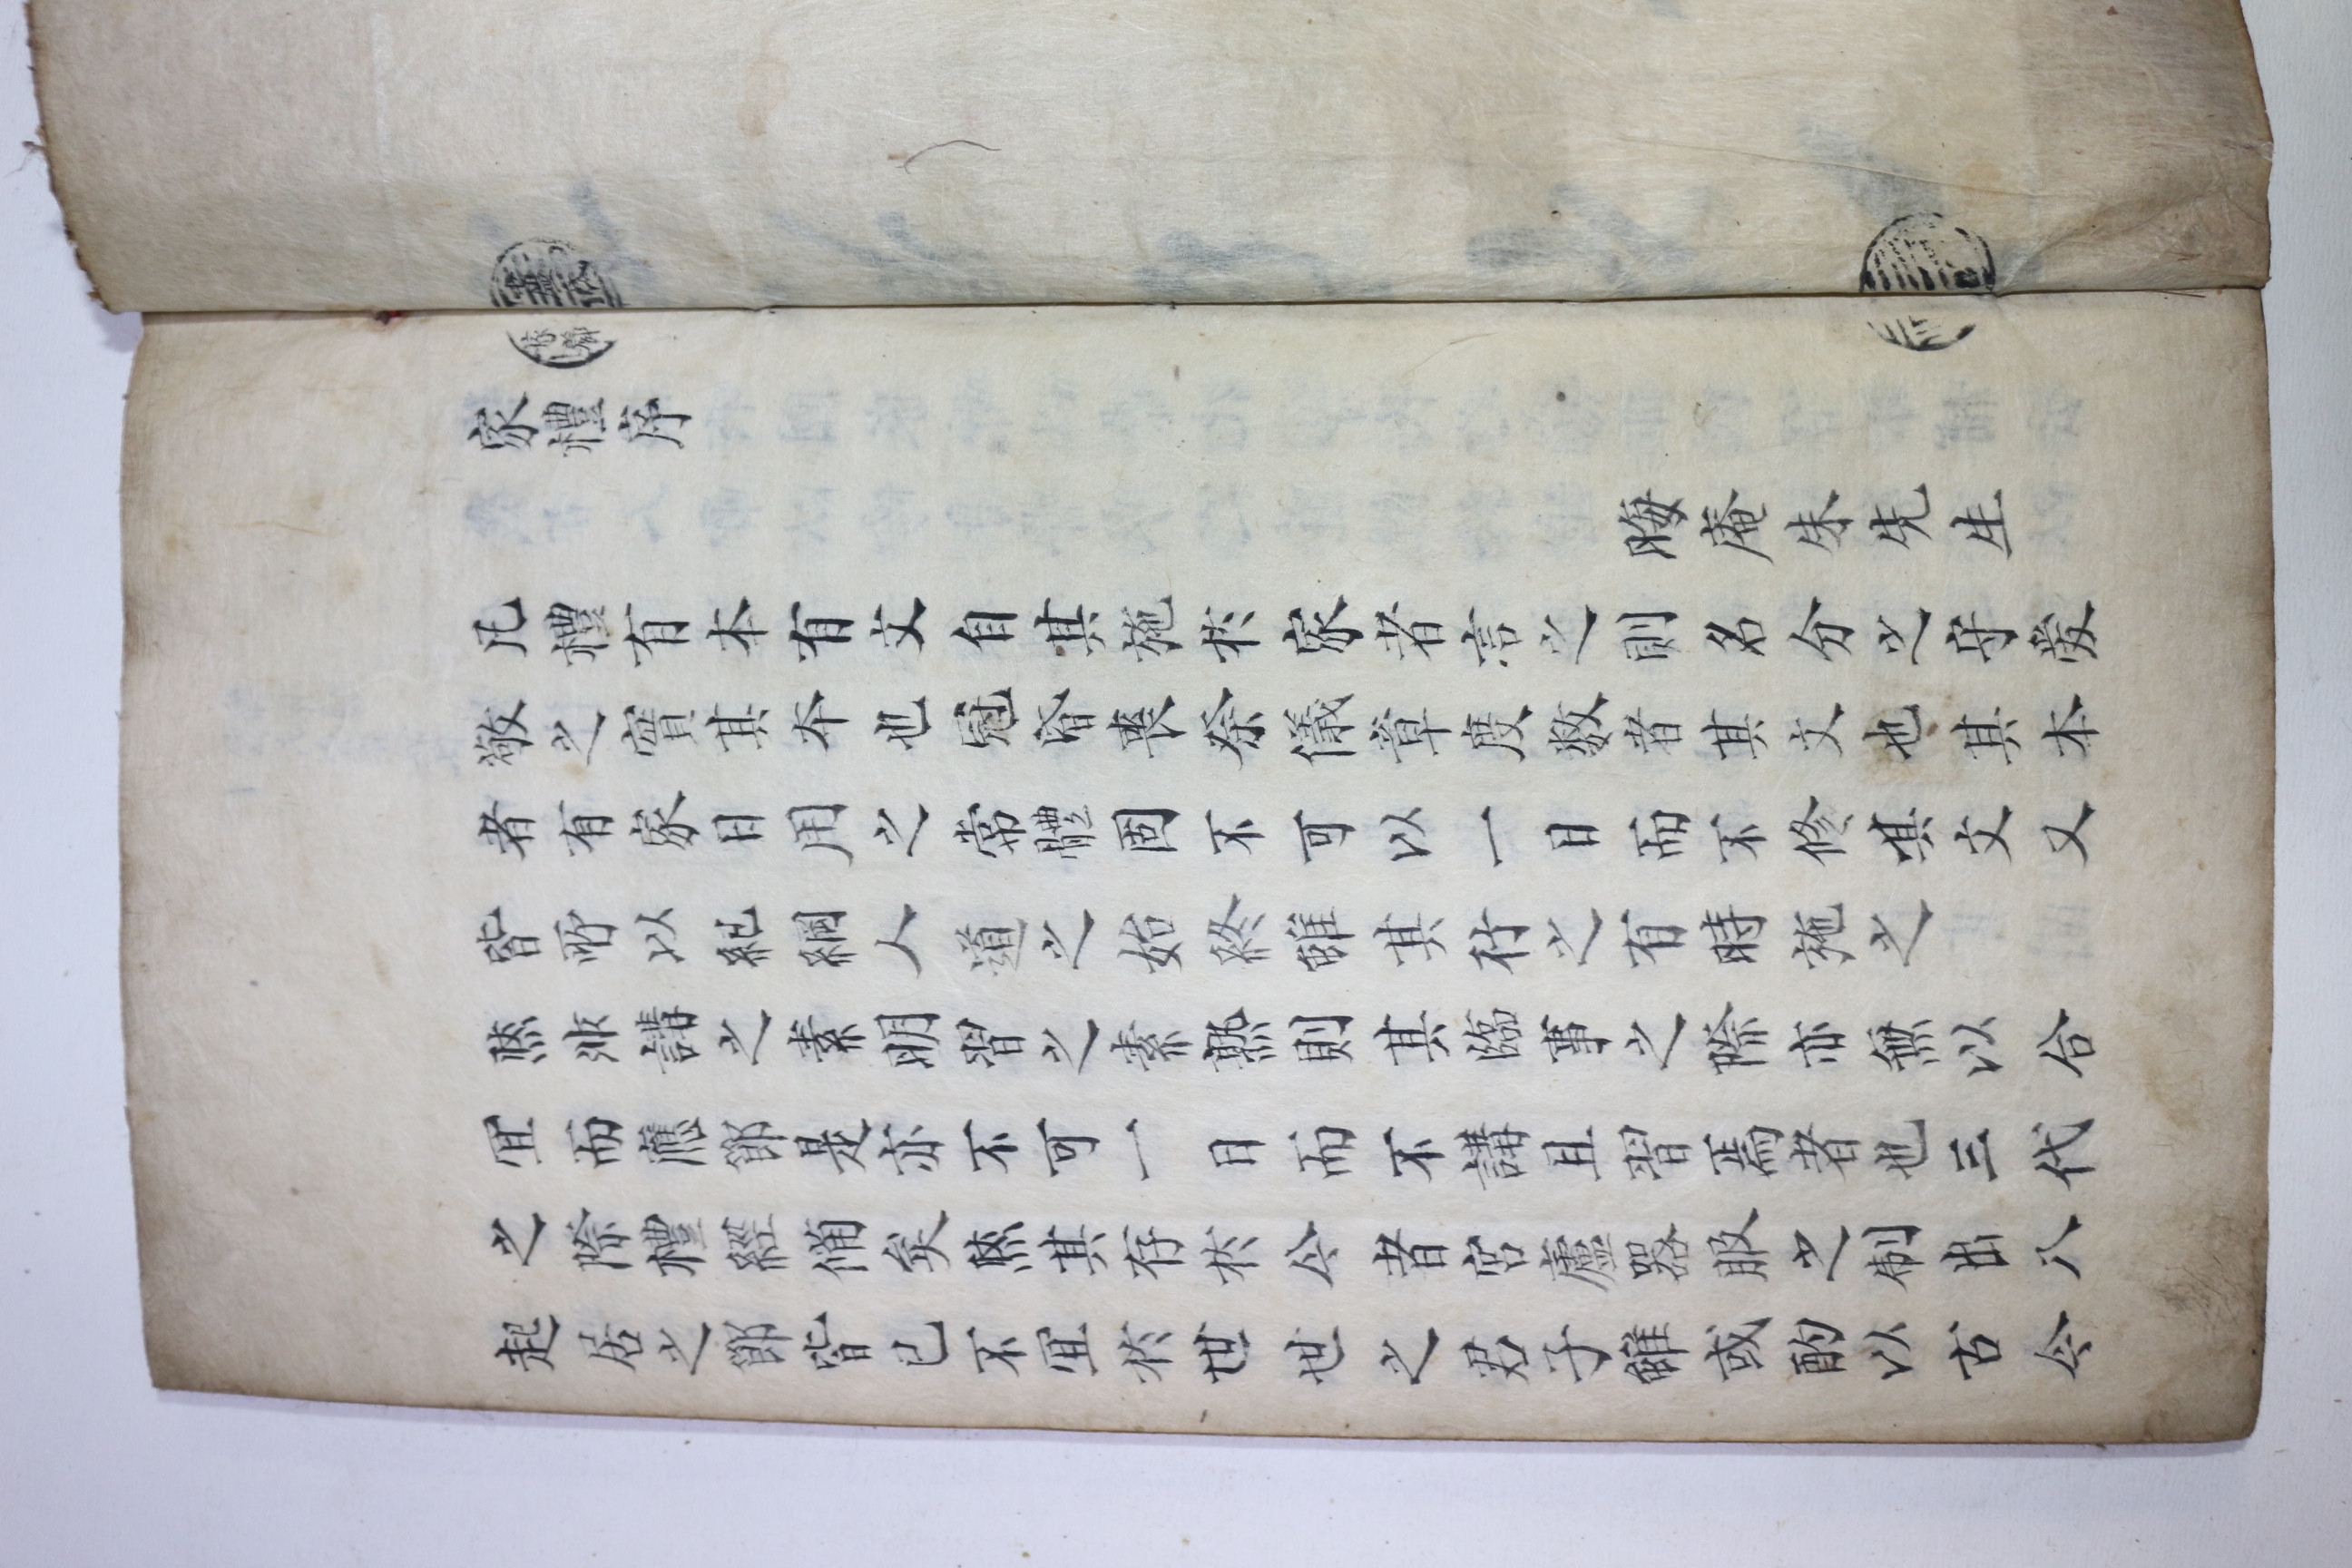 家禮序
晦庵朱先生
凡禮有本有文自其施於家者言之則名分之守愛
敬之實其本也冠昏喪祭儀章度數者其文也其本
者有家日用之常軆固不可以一日而不修其文又
皆所以紀綱人道之始終雖其行之有時施之
然非講之素明習之素熟則其臨事之際亦無以合
宜而應節是亦不可一日而不講且習焉者也三代
之際禮經備矣然其存於今者宮廬器服之制出入
起居之節皆已不宜於世世之君子雖或酌以古今